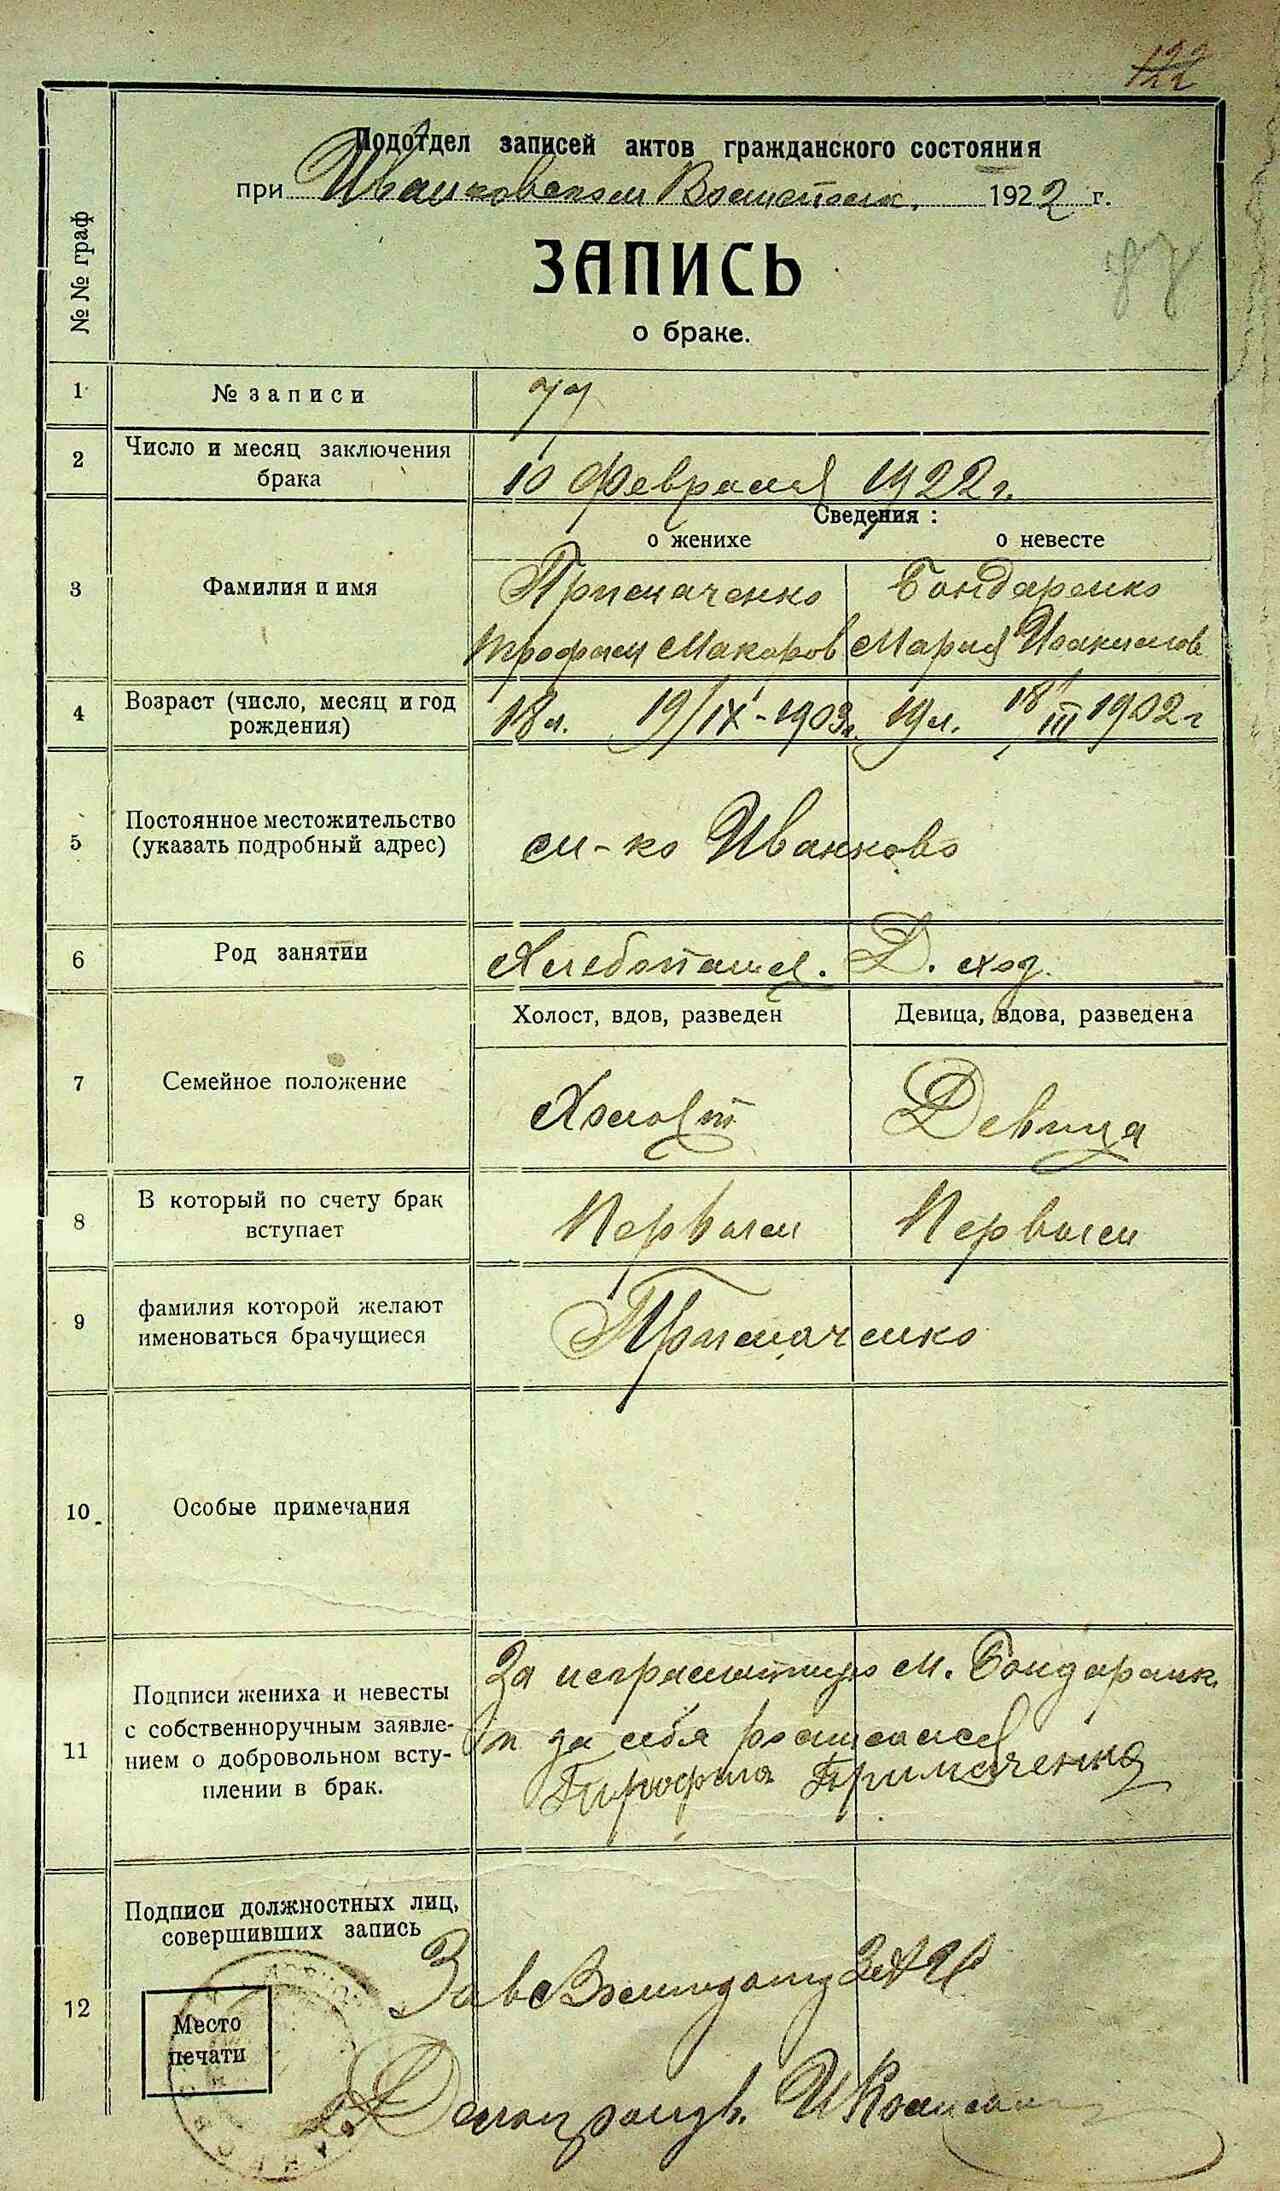 122
Подотдел записей актов гражданского состояния
при Иванковском Волисполк. 1922 г.
ЗАПИСЬ
о браке.
№ № граф
1 № записи 77
2 Число и месяц заключения брака 10 февраля 1922 г.
Сведения:
о женихе о невесте
3 Фамилия и имя Примаченко Бондаренко
Трофим Макаров Мария Иоакимова
4 Возраст (число, месяц и год рождения) 18 л. 19/IX-1903 г. 19 л. 18/III 1902 г
5 Постоянное местожительство (указать подробный адрес) м-ко Иванково
6 Род занятии Хлебопаш. Д. хоз.
Холост, вдов, разведен Девица, вдова, разведена
7 Семейное положение Холост Девица
8 В который по счету брак вступает Первым Первым
9 фамилия которой желают именоваться брачущиеся Примаченко
10 Особые примечания
11 Подписи жениха и невесты с собственноручным заявле- нием о добровольном всту- плении в брак.
За неграмотную М. Бондаренк.
и за себя росписался
Трофим Примаченко
12 Подписи должностных лиц, совершивших запись
Место печати
Зав
Делопроизв.